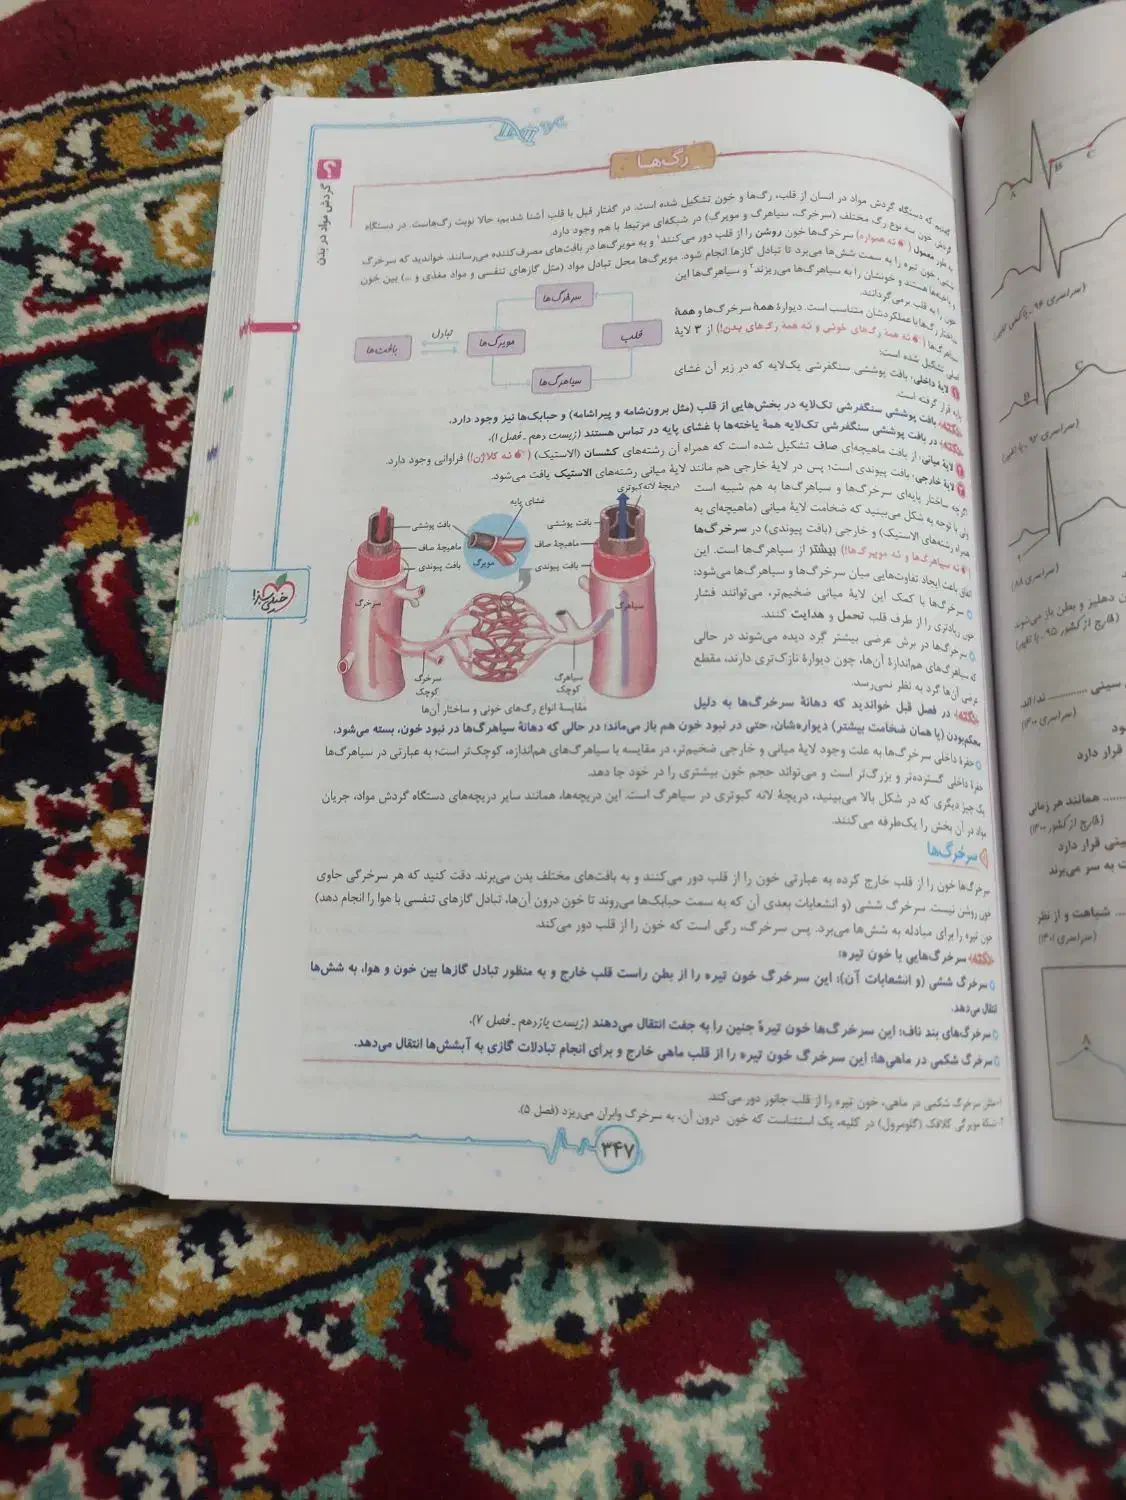 رگ‌ها
گفتیم که دستگاه گردش مواد در انسان از قلب، رگ‌ها و خون تشکیل شده است. در گفتار قبل با قلب آشنا شدیم، حالا نوبت رگ‌هاست. در دستگاه
گردش خون سه نوع رگ مختلف (سرخرگ، سیاهرگ و مویرگ) در شبکه‌ای مرتبط با هم وجود دارد.
به طور معمول (نه همواره) سرخرگ‌ها خون روشن را از قلب دور می‌کنند۱ و به مویرگ‌ها در بافت‌های مصرف‌کننده می‌رسانند. خواندید که سرخرگ
ششی، خون تیره را به سمت شش‌ها می‌برد تا تبادل گازها انجام شود. مویرگ‌ها محل تبادل مواد (مثل گازهای تنفسی و مواد مغذی و ...) بین خون
و یاخته‌ها هستند و خونشان را به سیاهرگ‌ها می‌ریزند۲ و سیاهرگ‌ها این
خون را به قلب برمی‌گردانند.
ساختار رگ‌ها با عملکردشان متناسب است. دیوارهٔ همهٔ سرخرگ‌ها و همهٔ
سیاهرگ‌ها (نه همهٔ رگ‌های خونی و نه همهٔ رگ‌های بدن!) از ۳ لایهٔ
اصلی تشکیل شده است:
سرخرگ‌ها
قلب
مویرگ‌ها
تبادل
بافت‌ها
سیاهرگ‌ها
۱ لایهٔ داخلی: بافت پوششی سنگفرشی یک‌لایه که در زیر آن غشای
پایه قرار گرفته است.
نکته: بافت پوششی سنگفرشی تک‌لایه در بخش‌هایی از قلب (مثل برون‌شامه و پیراشامه) و حبابک‌ها نیز وجود دارد.
نکته: در بافت پوششی سنگفرشی تک‌لایه همهٔ یاخته‌ها با غشای پایه در تماس هستند (زیست دهم - فصل ۱).
۲ لایهٔ میانی: از بافت ماهیچه‌ای صاف تشکیل شده است که همراه آن رشته‌های کشسان (الاستیک) (نه کلاژن!) فراوانی وجود دارد.
۳ لایهٔ خارجی: بافت پیوندی است؛ پس در لایهٔ خارجی هم مانند لایهٔ میانی رشته‌های الاستیک یافت می‌شود.
اگرچه ساختار پایه‌ای سرخرگ‌ها و سیاهرگ‌ها به هم شبیه است
ولی با توجه به شکل می‌بینید که ضخامت لایهٔ میانی (ماهیچه‌ای به
همراه رشته‌های الاستیک) و خارجی (بافت پیوندی) در سرخرگ‌ها
(نه سیاهرگ‌ها و نه مویرگ‌ها!) بیشتر از سیاهرگ‌ها است. این
اتفاق باعث ایجاد تفاوت‌هایی میان سرخرگ‌ها و سیاهرگ‌ها می‌شود:
سرخرگ‌ها با کمک این لایهٔ میانی ضخیم‌تر، می‌توانند فشار
خون زیادتری را از طرف قلب تحمل و هدایت کنند.
سرخرگ‌ها در برش عرضی بیشتر گرد دیده می‌شوند در حالی
که سیاهرگ‌های هم‌اندازهٔ آن‌ها، چون دیوارهٔ نازک‌تری دارند، مقطع
عرضی آن‌ها گرد به نظر نمی‌رسد.
دریچهٔ لانه‌کبوتری
غشای پایه
بافت پوششی
ماهیچهٔ صاف
بافت پیوندی
مویرگ
بافت پوششی
ماهیچهٔ صاف
بافت پیوندی
سرخرگ
سیاهرگ
سرخرگ کوچک
سیاهرگ کوچک
مقایسهٔ انواع رگ‌های خونی و ساختار آن‌ها
نکته: در فصل قبل خواندید که دهانهٔ سرخرگ‌ها به دلیل
محکم‌بودن (یا همان ضخامت بیشتر) دیواره‌شان، حتی در نبود خون هم باز می‌ماند؛ در حالی که دهانهٔ سیاهرگ‌ها در نبود خون، بسته می‌شود.
حفرهٔ داخلی سرخرگ‌ها به علت وجود لایهٔ میانی و خارجی ضخیم‌تر، در مقایسه با سیاهرگ‌های هم‌اندازه، کوچک‌تر است؛ به عبارتی در سیاهرگ‌ها
حفرهٔ داخلی گسترده‌تر و بزرگ‌تر است و می‌تواند حجم خون بیشتری را در خود جا دهد.
یک چیز دیگری که در شکل بالا می‌بینید، دریچهٔ لانه کبوتری در سیاهرگ است. این دریچه‌ها، همانند سایر دریچه‌های دستگاه گردش مواد، جریان
مواد در آن بخش را یک‌طرفه می‌کنند.
سرخرگ‌ها
سرخرگ‌ها خون را از قلب خارج کرده به عبارتی خون را از قلب دور می‌کنند و به بافت‌های مختلف بدن می‌برند. دقت کنید که هر سرخرگی حاوی
خون روشن نیست. سرخرگ ششی (و انشعابات بعدی آن که به سمت حبابک‌ها می‌روند تا خون درون آن‌ها، تبادل گازهای تنفسی با هوا را انجام دهد)
خون تیره را برای مبادله به شش‌ها می‌برد. پس سرخرگ، رگی است که خون را از قلب دور می‌کند.
نکته: سرخرگ‌هایی با خون تیره:
سرخرگ ششی (و انشعابات آن): این سرخرگ خون تیره را از بطن راست قلب خارج و به منظور تبادل گازها بین خون و هوا، به شش‌ها
انتقال می‌دهد.
سرخرگ‌های بند ناف: این سرخرگ‌ها خون تیرهٔ جنین را به جفت انتقال می‌دهند (زیست یازدهم - فصل ۷).
سرخرگ شکمی در ماهی‌ها: این سرخرگ خون تیره را از قلب ماهی خارج و برای انجام تبادلات گازی به آبشش‌ها انتقال می‌دهد.
۱- مثل سرخرگ شکمی در ماهی، خون تیره را از قلب جانور دور می‌کند.
۲- شبکهٔ مویرگی کلافک (گلومرول) در کلیه، یک استثناست که خون درون آن، به سرخرگ وابران می‌ریزد (فصل ۵).
۳۴۷
گردش مواد در بدن
خیلی سبز
A
B
C
B
C
(سراسری ۹۲)
(سراسری ۸۸)
ن دهلیز و بطن باز می‌شوند
سینی ........ نداند.
(سراسری ۱۴۰۰)
قرار دارد
.... همانند هر زمانی
(خارج از کشور ۱۴۰۰)
ینی قرار دارد
ت به سر می‌برند
... شباهت و از نظر
(سراسری ۱۴۰۱)
A